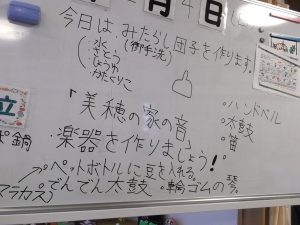 月4日
今日は みたらし団子を作ります。
(御手洗)
・水
・さとう
・しょうゆ
・かたくりこ
「美穂の家の音」
楽器を作りましょう!
・ハンドベル
・太鼓
・笛
ペットボトルに豆を入れる。
マラカス
でんでん太鼓 ・輪ゴムの琴
立
鍋